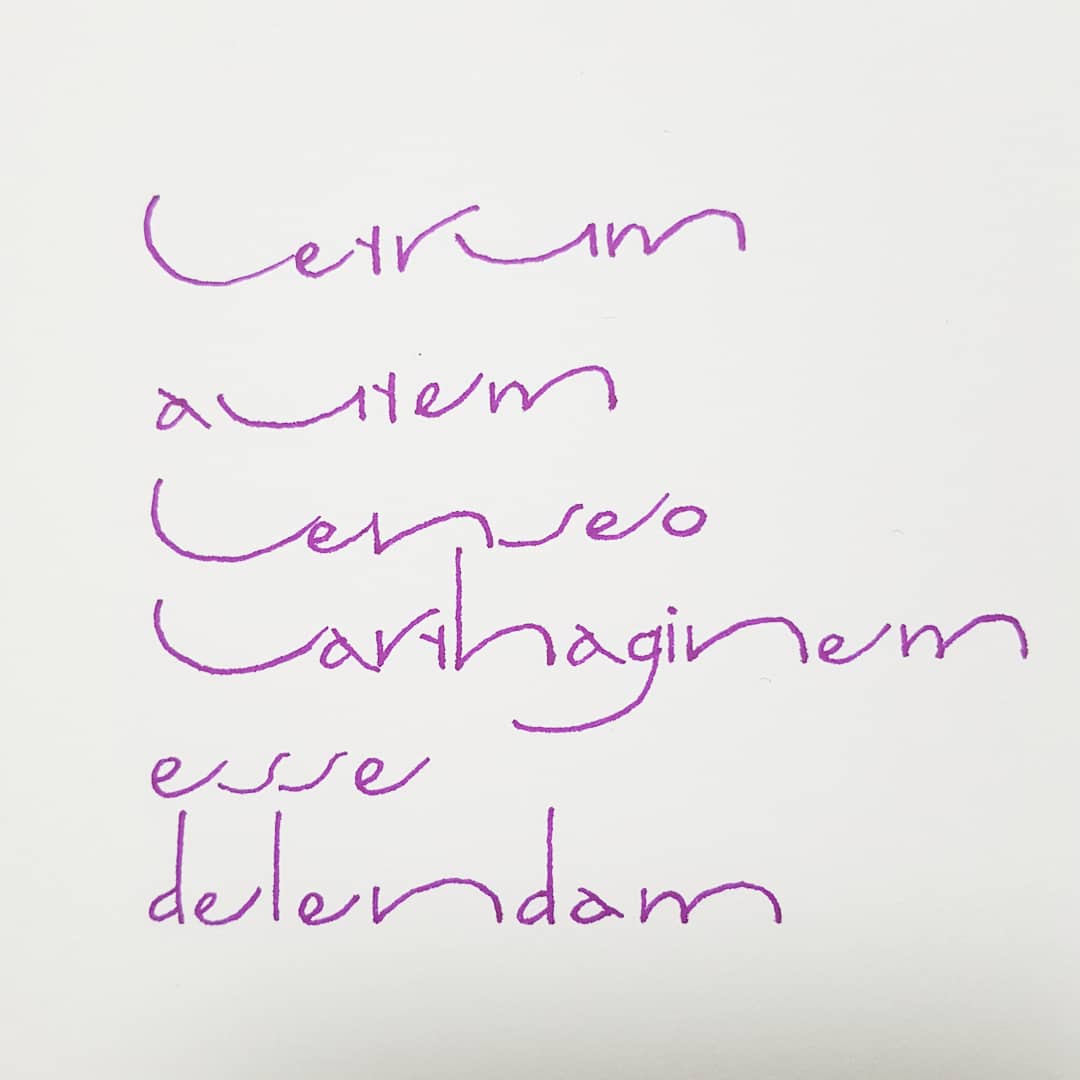 Cetrum
autem
Censeo
Carthaginem
esse
delendam